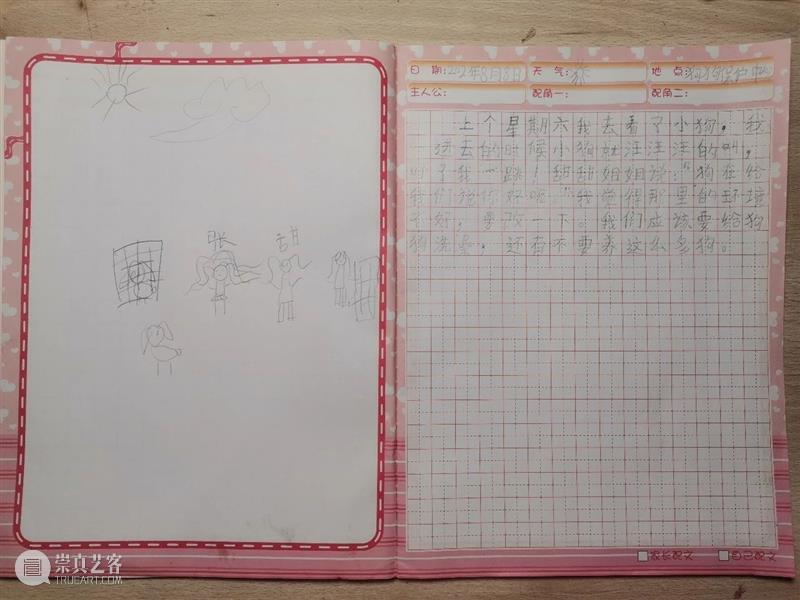 张
甜
日 期: 2021年8月8日 天 气: 地 点: 狗狗保护中心
主人公: 配角一: 配角二:
上个星期六我去看了小狗，我
进去的时候小狗就汪汪汪的叫，
吓了我一跳！甜甜姐姐说：“狗在给
我们说你好呢。”我觉得那里的环境
不好，要改一下。我们应该要给狗
狗洗澡，还有不要养这么多狗。
家长配文 自己配文
崇真艺客
TRUEART.COM